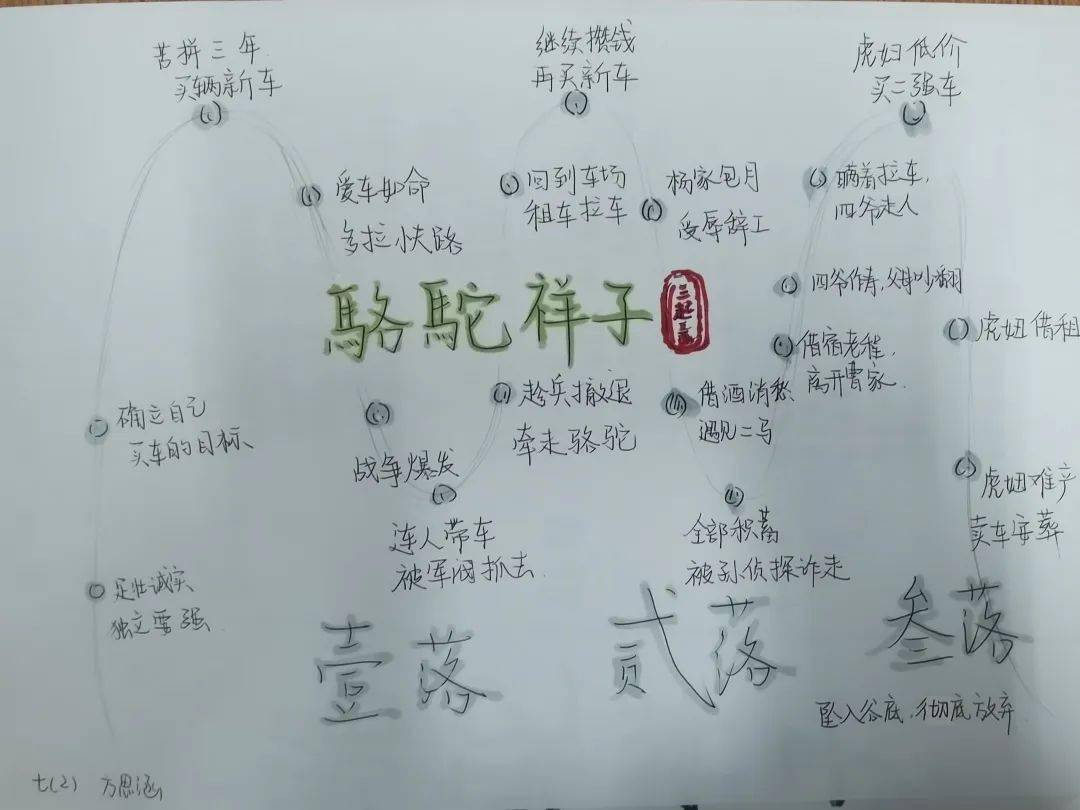 苦拼三年
买辆新车
继续攒钱
再买新车
虎妞低价
买二强车
爱车如命
多拉快跑
回到车场
租车拉车
杨家包月
受辱辞工
瞒着拉车,
四爷走人
駱駝祥子
三起三落
四爷作寿,父女吵翻
虎妞借租
借宿老程,
离开曹家
确立自己
买车的目标
战争爆发
趁兵撤退
牵走骆驼
借酒消愁
遇见二马
连人带车
被军阀抓去
全部积蓄
被孙侦探诈走
虎妞难产
卖车安葬
诚实
独立要强
壹落
贰落
叁落
坠入谷底,彻底放弃
七(2) 方思涵